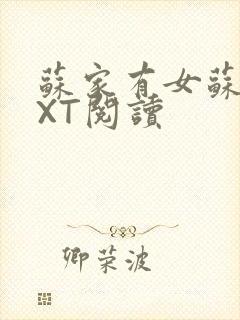 蘇家有女蘇
XT閱讀
卿荣波